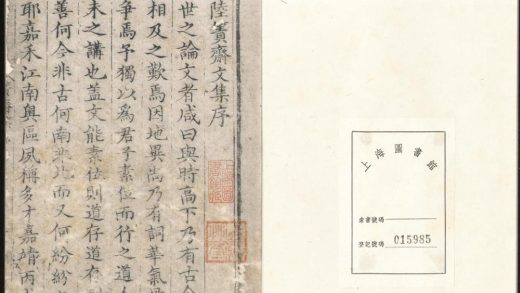 陸簣齋文集序
世之論文者咸曰與時高下乃有古今
相及之歎焉因地異尚乃有詞華氣
爭焉予獨以為君子素位而行之道人
未之講也蓋文能素位則道存道存
善何今非古何南非北而又何紛紛
耶嘉禾江南輿區夙稱多才嘉靖丙
上海圖書館
索書號碼
登記號碼 015985